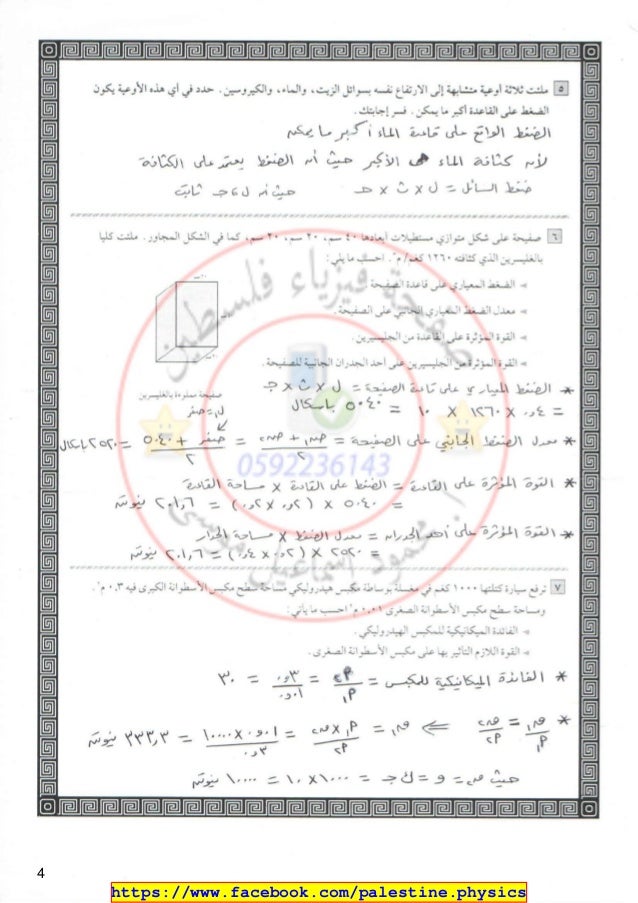 ٥ ملئت ثلاثة أوعية متشابهة إلى الارتفاع نفسه بسوائل الزيت، والماء، والكيروسين. حدد في أي هذه الأوعية يكون
الضغط على القاعدة أكبر ما يمكن. فسر إجابتك.
الضغط الواقع على قاعدة الماء أكبر ما يمكن
لأن كثافة الماء هي الأكبر حيث أن الضغط يعتمد على الكثافة
ضغط السائل = ل × ث × جـ حيث أن ل، جـ ثابت
٦ صفيحة على شكل متوازي مستطيلات أبعادها ٤٠ سم، ٢٠ سم، ٢٠ سم، كما في الشكل المجاور. ملئت كليا
بالغليسرين الذي كثافته ١٢٦٠ كغم/م٣. احسب ما يلي:
الضغط المعياري على قاعدة الصفيحة
معدل الضغط المعياري الجانبي على الصفيحة.
القوة المؤثرة على القاعدة من الجليسرين.
القوة المؤثرة من الجليسرين على أحد الجدران الجانبية للصفيحة.
صفيحة مملوءة بالغليسرين
* الضغط المعياري على قاعدة الصفيحة = ل × ث × جـ
= ٠,٤ × ١٢٦٠ × ١٠ = ٥٠٤٠ باسكال
ل١ = صفر
* معدل الضغط الجانبي على الصفيحة = ض١ + ض٢ / ٢ = صفر + ٥٠٤٠ / ٢ = ٢٥٢٠ باسكال
* القوة المؤثرة على القاعدة = الضغط على القاعدة × مساحة القاعدة
= ٥٠٤٠ × (٠,٢ × ٠,٢) = ٢٠١,٦ نيوتن
* القوة المؤثرة على أحد الجدران = معدل الضغط × مساحة الجدار
= ٢٥٢٠ × (٠,٢ × ٠,٤) = ٢٠١,٦ نيوتن
صفحة فيزياء فلسطين
0592236143
أ. محمود اسماعيل موسى
٧ ترفع سيارة كتلتها ١٠٠٠ كغم في مغسلة بوساطة مكبس هيدروليكي مساحة سطح مكبس الأسطوانة الكبرى فيه ٠.٣ م٢.
ومساحة سطح مكبس الأسطوانة الصغرى ٠.٠١ م٢ احسب ما يأتي:
الفائدة الميكانيكية للمكبس الهيدروليكي.
القوة اللازم التأثير بها على مكبس الأسطوانة الصغرى.
* الفائدة الميكانيكية للمكبس = أ٢ / أ١ = ٠,٣ / ٠,٠١ = ٣٠
* ق١ / أ١ = ق٢ / أ٢ ⇐ ق١ = أ١ × ق٢ / أ٢ = ٠,٠١ × ١٠٠٠٠ / ٠,٣ = ٣٣٣,٣ نيوتن
حيث ق٢ = و = ك جـ = ١٠٠٠ × ١٠ = ١٠٠٠٠ نيوتن
4
https://www.facebook.com/palestine.physics